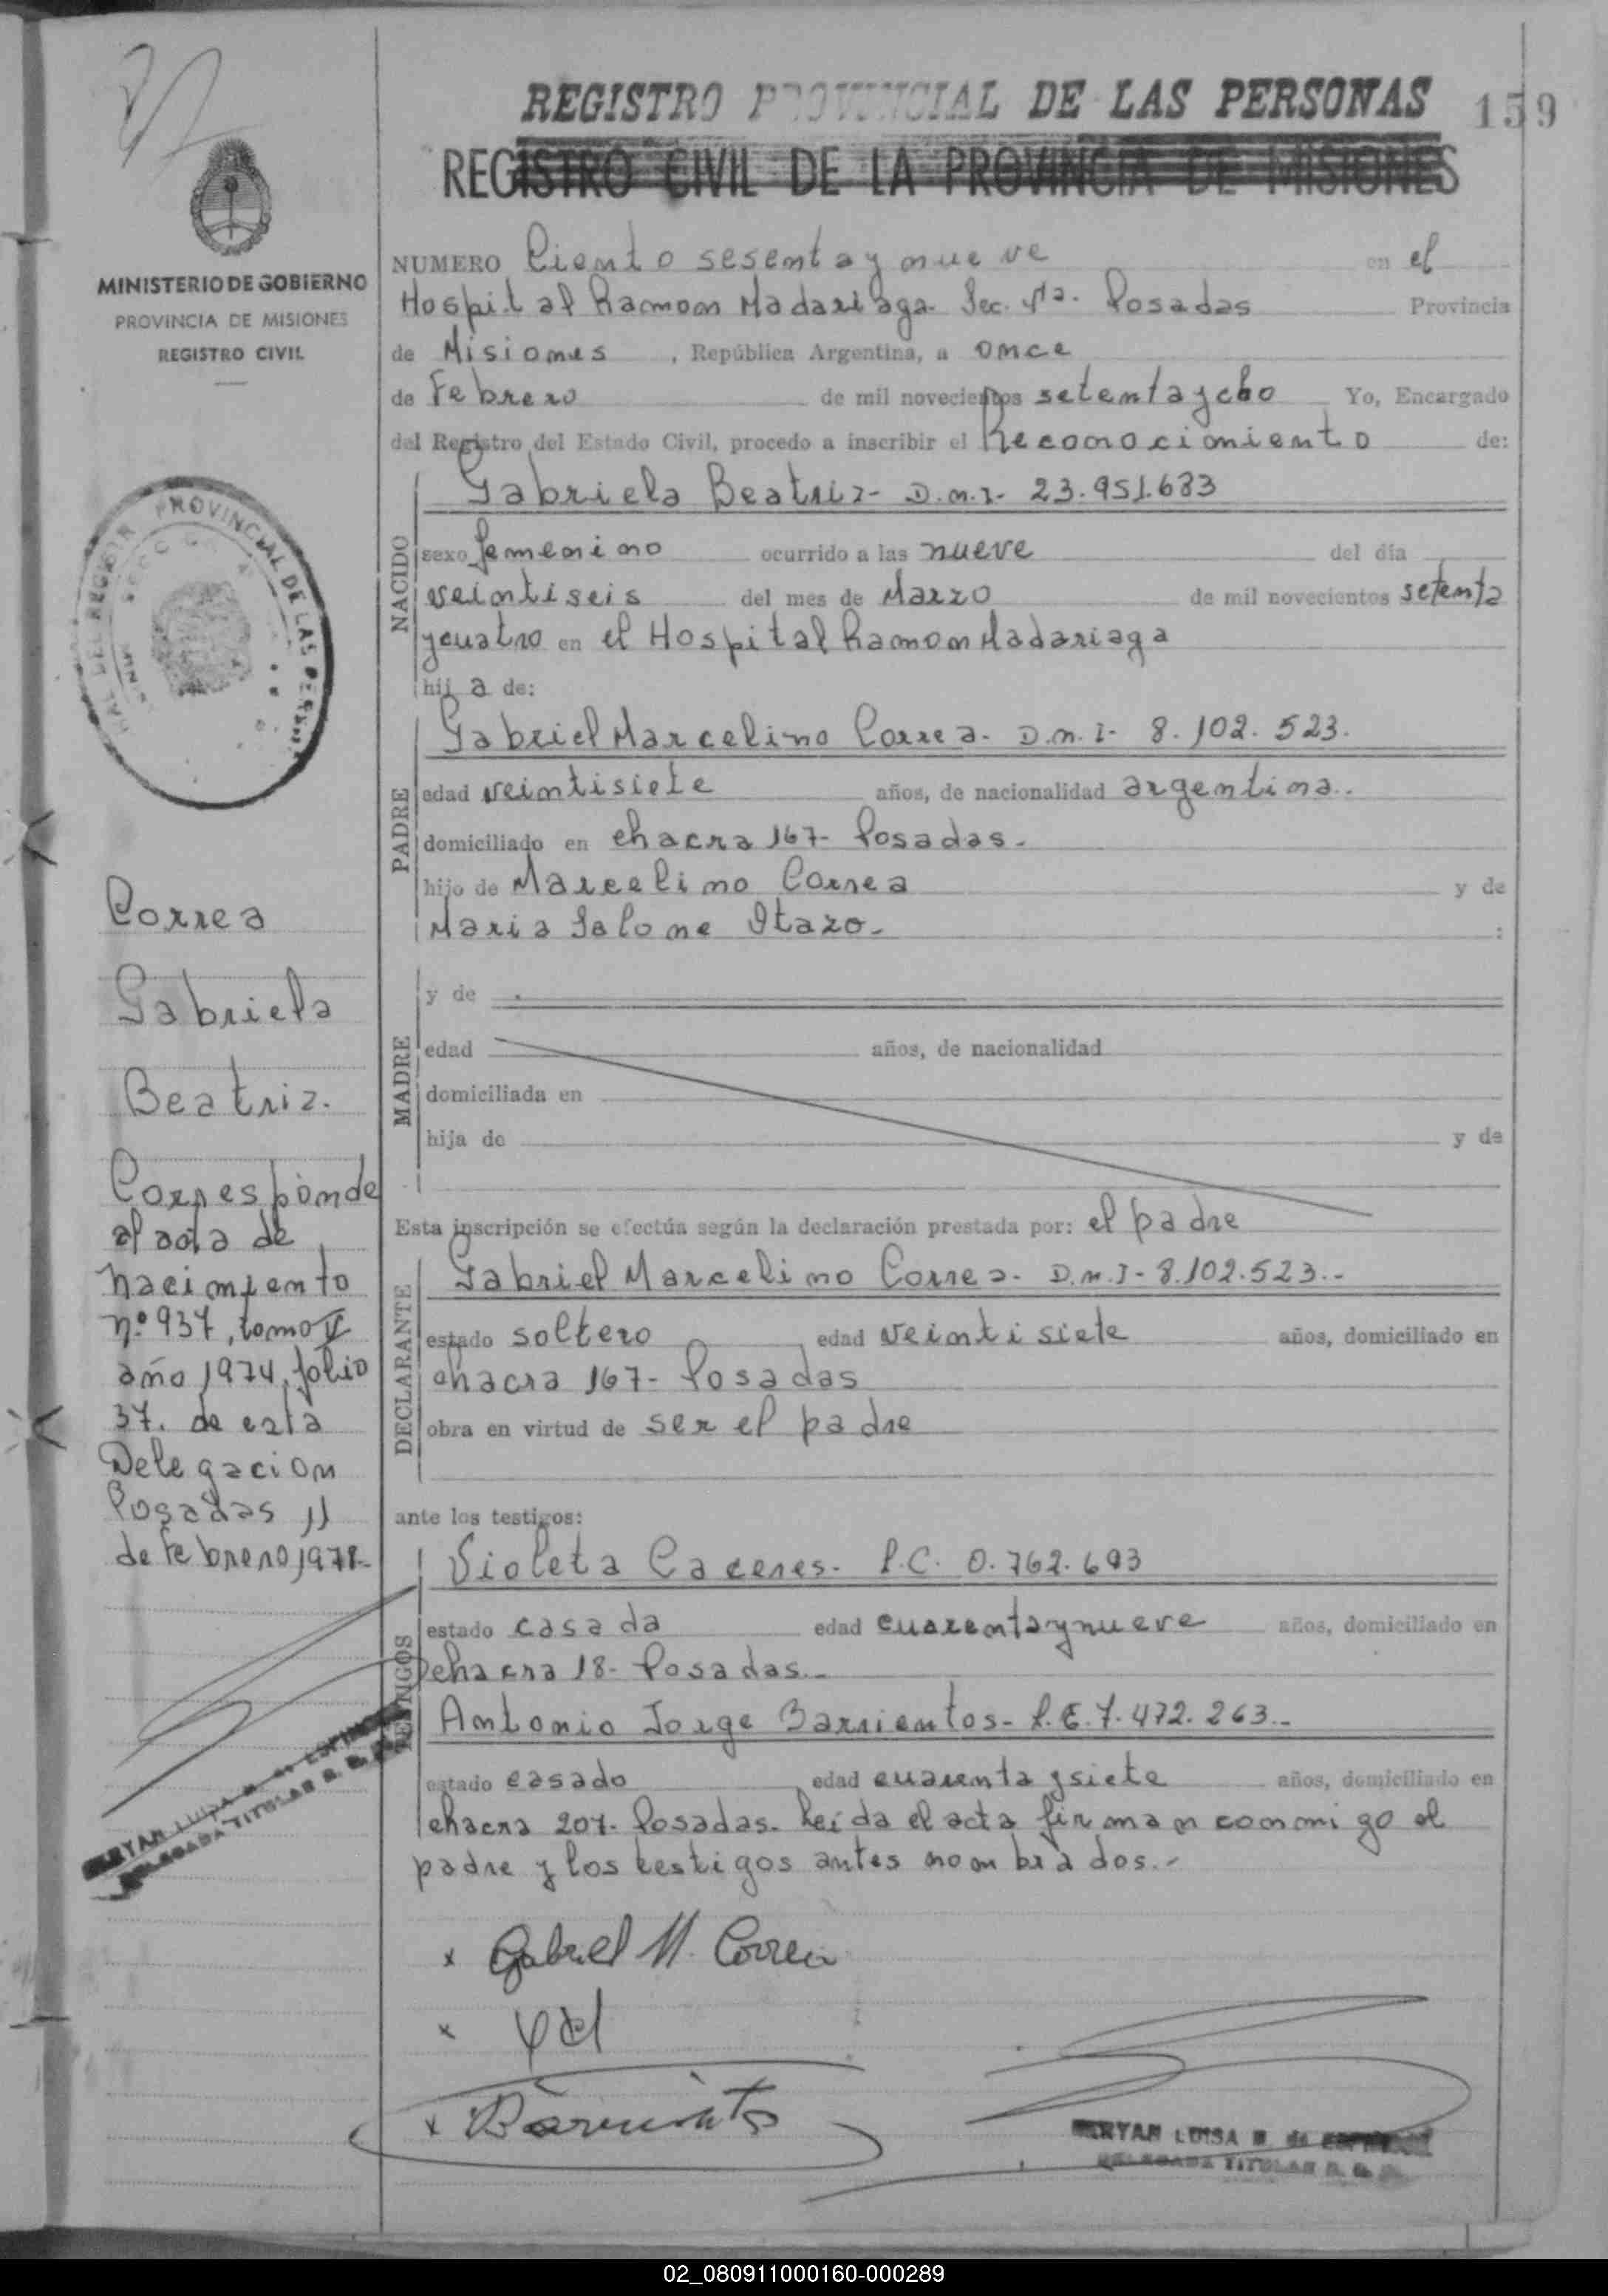 REGISTRO PROVINCIAL DE LAS PERSONAS 159
REGISTRO CIVIL DE LA PROVINCIA DE MISIONES
MINISTERIO DE GOBIERNO
PROVINCIA DE MISIONES
REGISTRO CIVIL
NUMERO Ciento sesenta y nueve en el
Hospital Ramon Madariaga. Sec. 4ta. Posadas Provincia
de Misiones , República Argentina, a once
de Febrero de mil novecientos setenta y cho Yo, Encargado
del Registro del Estado Civil, procedo a inscribir el Reconocimiento de:
NACIDO
Gabriela Beatriz- D.N.I- 23.951.633
sexo femenino ocurrido a las nueve del día
veintiseis del mes de Marzo de mil novecientos setenta
y cuatro en el Hospital Ramon Madariaga
hij a de:
PADRE
Gabriel Marcelino Correa- D.N.I- 8.102.523.
edad veintisiete años, de nacionalidad argentina.
domiciliado en chacra 167- Posadas.
hijo de Marcelino Correa y de
Maria Salome Itazo.- :
MADRE
y de
edad años, de nacionalidad
domiciliada en
hija de y de
Esta inscripción se efectúa según la declaración prestada por: el padre
DECLARANTE
Gabriel Marcelino Correa- D.N.I- 8.102.523.-
estado soltero , edad veintisiete años, domiciliado en
chacra 167- Posadas
obra en virtud de ser el padre
ante los testigos:
TESTIGOS
Violeta Caceres- L.C. 0.762.693
estado casada edad cuarenta y nueve años, domiciliado en
chacra 18- Posadas.-
Antonio Jorge Barrientos- L.E. 7.472.263.-
estado casado , edad cuarenta y siete años, domiciliado en
chacra 207- Posadas- Leída el acta firman conmigo el
padre y los testigos antes nombrados.-
x Gabriel M. Correa
x
x Barrientos
LUISA
DELEGADA TITULAR R.
Correa
Gabriela
Beatriz.
Corresponde
al acta de
nacimiento
nº 937, tomo V
año 1974, folio
37. de esta
Delegacion
Posadas 11
de febrero 1978-
LUISA
DELEGADA TITULAR R.
PROVINCIAL DE LAS
02_080911000160-000289